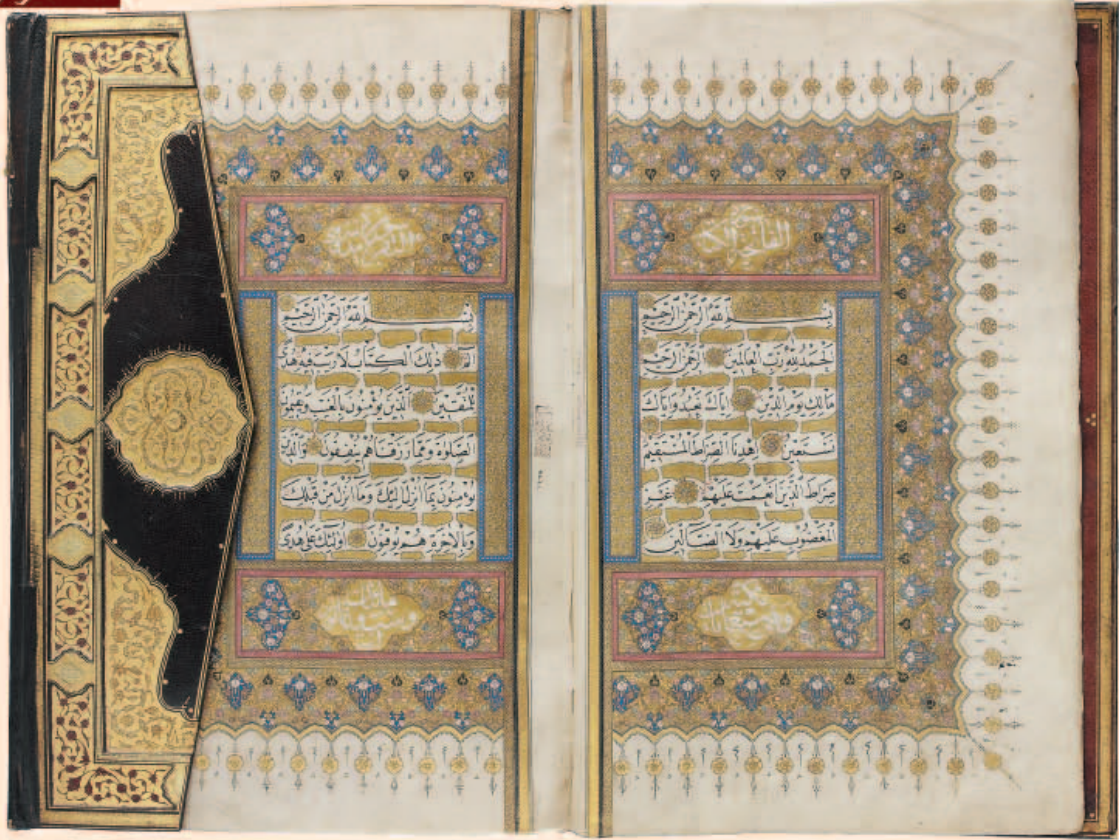 بِسْمِ اللّٰهِ الرَّحْمٰنِ الرَّحِيمِ
اَلْحَمْدُ لِلّٰهِ رَبِّ الْعَالَمِينَ الرَّحْمٰنِ الرَّحِيمِ
مَالِكِ يَوْمِ الدِّينِ اِيَّاكَ نَعْبُدُ وَاِيَّاكَ
نَسْتَعِينُ اِهْدِنَا الصِّرَاطَ الْمُسْتَقِيمَ
صِرَاطَ الَّذِينَ اَنْعَمْتَ عَلَيْهِمْ غَيْرِ
الْمَغْضُوبِ عَلَيْهِمْ وَلَا الضَّالِّينَ
بِسْمِ اللّٰهِ الرَّحْمٰنِ الرَّحِيمِ
الم ذٰلِكَ الْكِتَابُ لَا رَيْبَ فِيهِ هُدًى
لِلْمُتَّقِينَ الَّذِينَ يُؤْمِنُونَ بِالْغَيْبِ وَيُقِيمُونَ
الصَّلٰوةَ وَمِمَّا رَزَقْنَاهُمْ يُنْفِقُونَ وَالَّذِينَ
يُؤْمِنُونَ بِمَا اُنْزِلَ اِلَيْكَ وَمَا اُنْزِلَ مِنْ قَبْلِكَ
وَبِالْاٰخِرَةِ هُمْ يُوقِنُونَ اُولٰئِكَ عَلٰى هُدًى